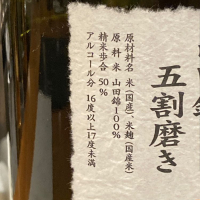 五割磨き
原材料名 米(国産)、米麹(国産米)
原料米 山田錦100%
精米歩合 50%
アルコール分 16度以上17度未満